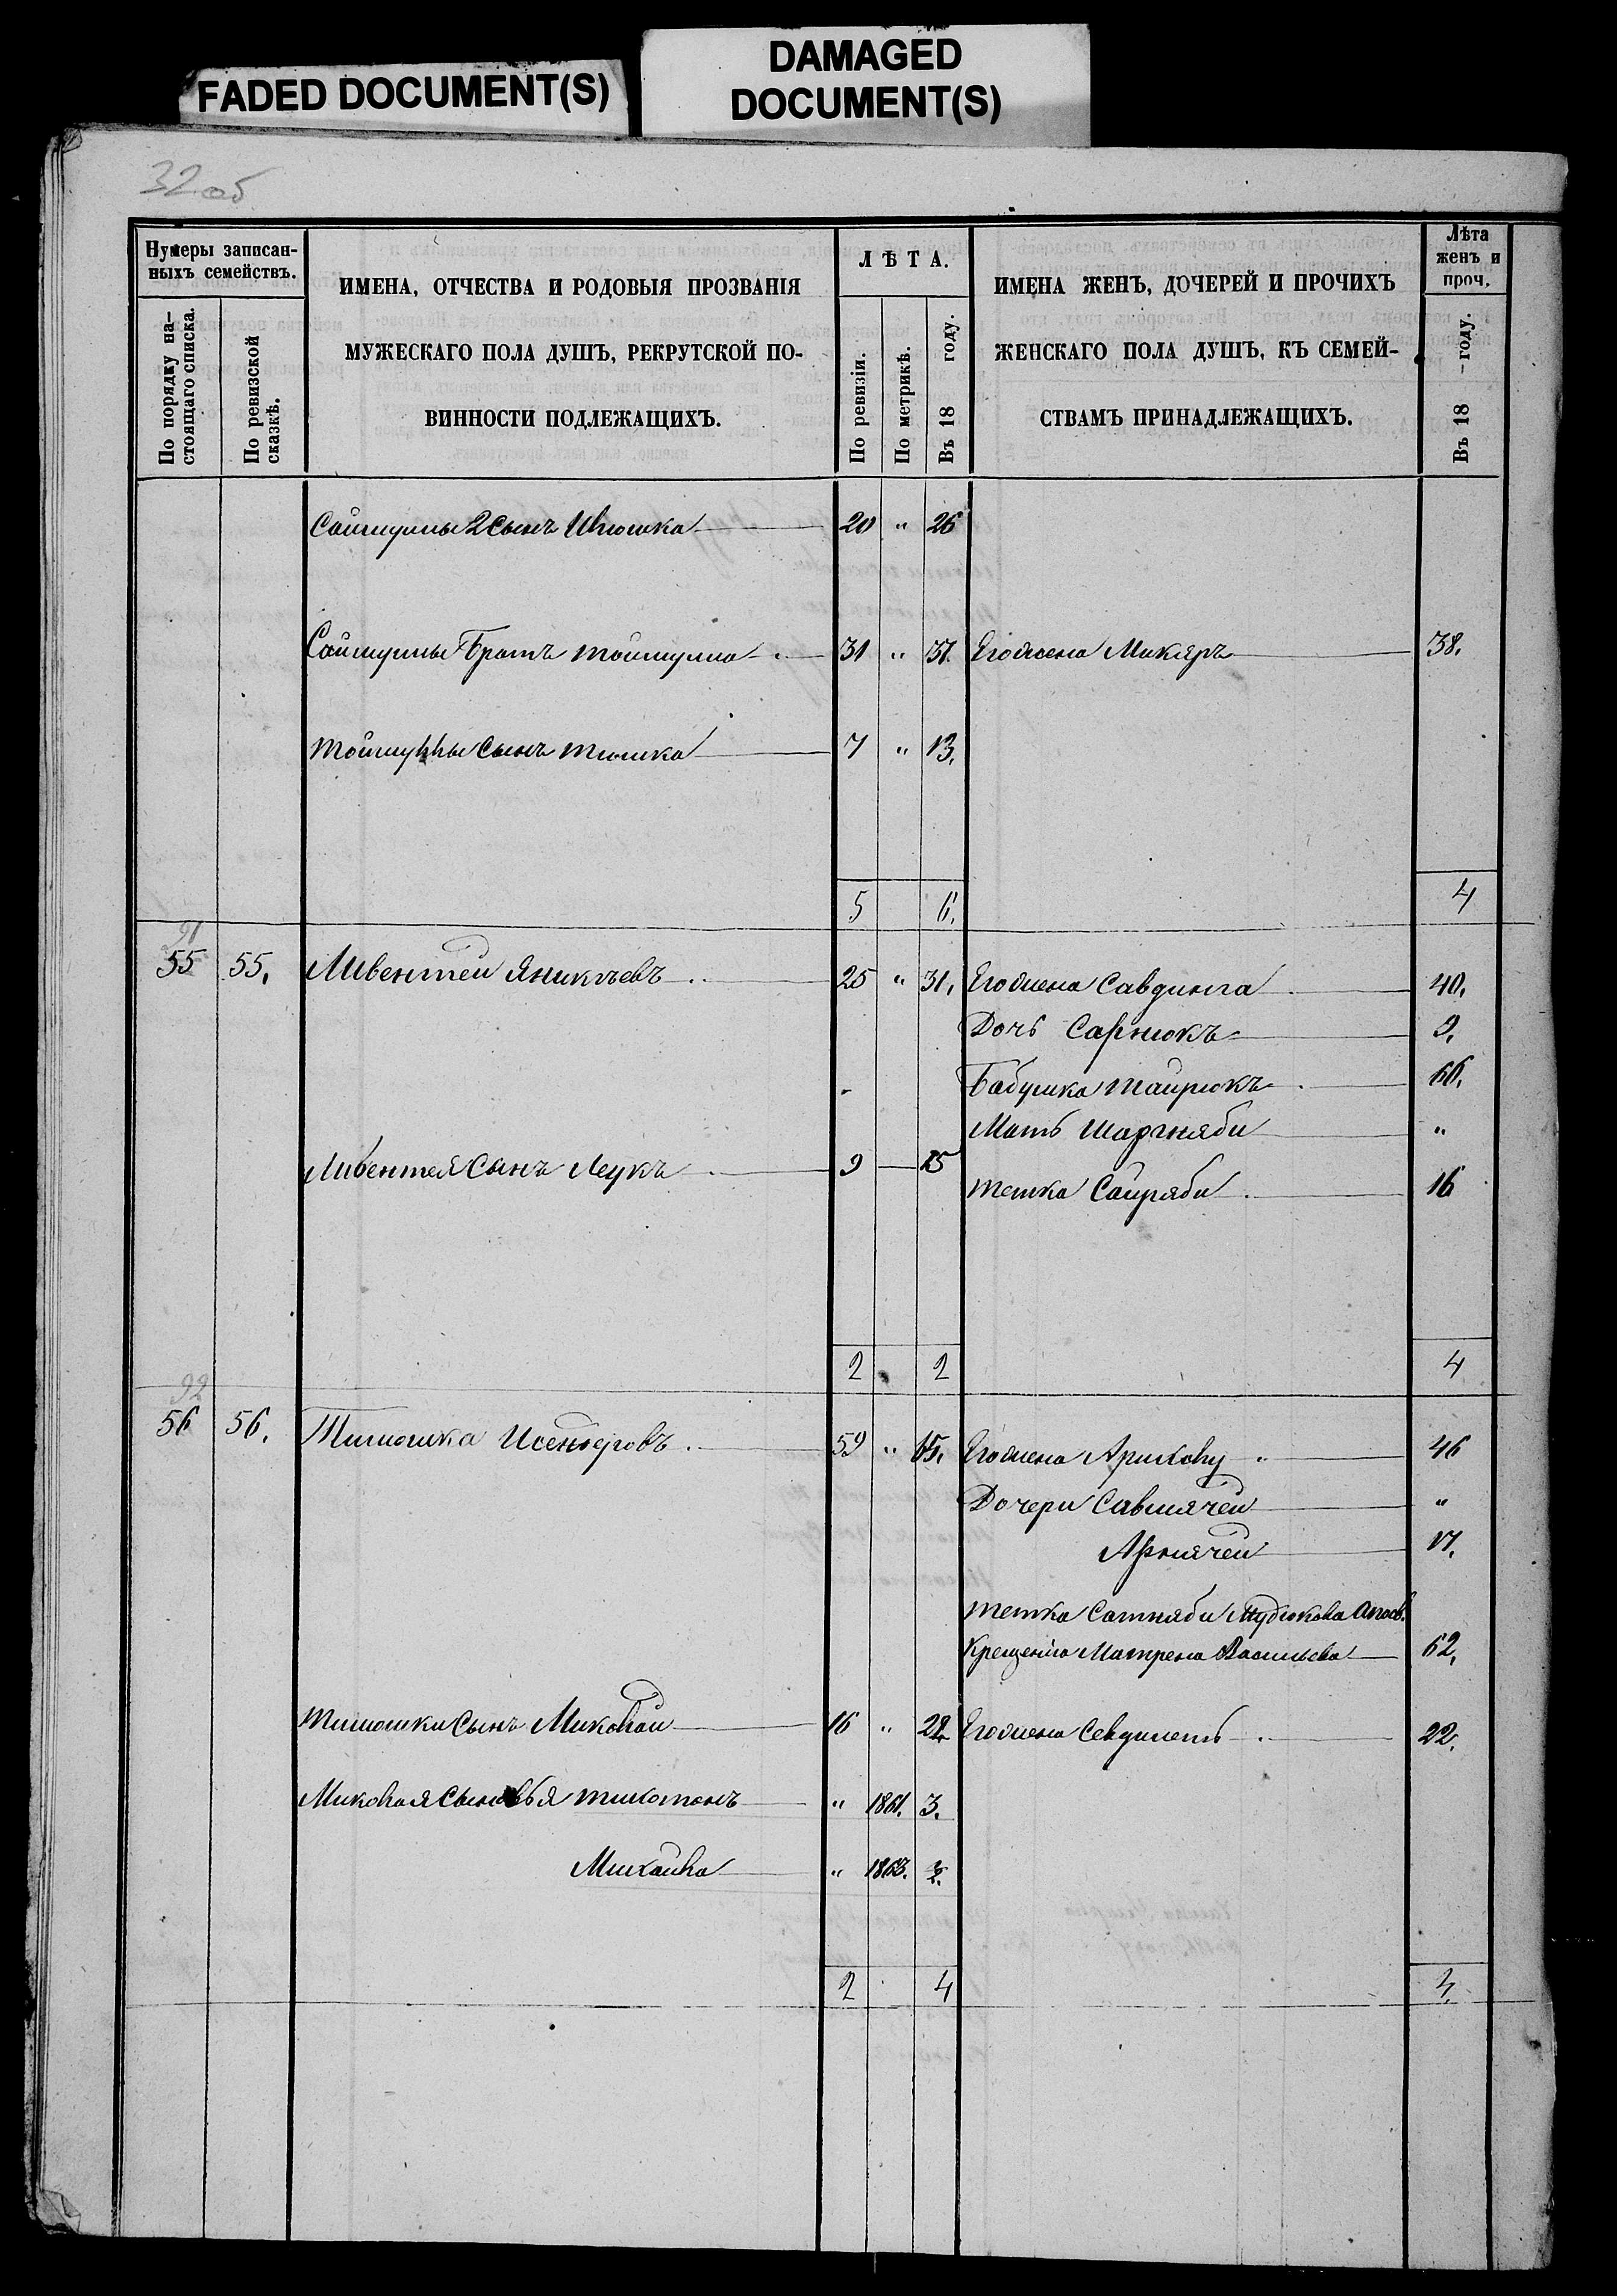 FADED DOCUMENT(S)
DAMAGED
DOCUMENT(S)
32 об
Нумеры записан-
ныхъ семействъ.
По порядку на-
стоящаго списка.
По ревизской
сказкѣ.
ИМЕНА, ОТЧЕСТВА И РОДОВЫЯ ПРОЗВАНІЯ
МУЖЕСКАГО ПОЛА ДУШЪ, РЕКРУТСКОЙ ПО-
ВИННОСТИ ПОДЛЕЖАЩИХЪ.
ЛѢТА.
По ревизіи.
По метрикѣ.
Въ 18 году.
ИМЕНА ЖЕНЪ, ДОЧЕРЕЙ И ПРОЧИХЪ
ЖЕНСКАГО ПОЛА ДУШЪ, КЪ СЕМЕЙ-
СТВАМЪ ПРИНАДЛЕЖАЩИХЪ.
Лѣта
женъ и
проч.
Въ 18 -году.
2 Сынъ 20 " 26
Братъ 31 " 37. Его жена Микяръ 38.
Сынъ Тюшка 7 " 13.
5 6. 4
91
55 55. Ливентей Яникѣевъ 25 " 31. Его жена Савдинга 40.
Дочь Сарнюкъ 9.
Бабушка Таирюкъ 66.
Мать Шаргняби "
Ливентея Сынъ Леукъ 9 — 15
Тетка Сайряби 16
2 2 4
92
56 56. Тимошка 59 " 65. Его жена 46
Дочери Савиячей "
Арниячей 17.
Тетка Сатняби
Крещенію Матрена Васильева 62.
Тимошки Сынъ Миколай 16 " 22. Его жена Севдилеть 22.
Миколая Сыновья " 1861. 3.
Михайла " 1863.
2 4 4.